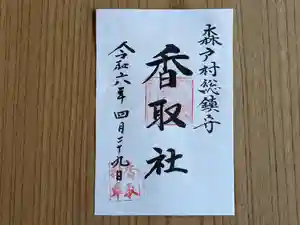 森戸村総鎮守
香取社
令和六年四月二十九日